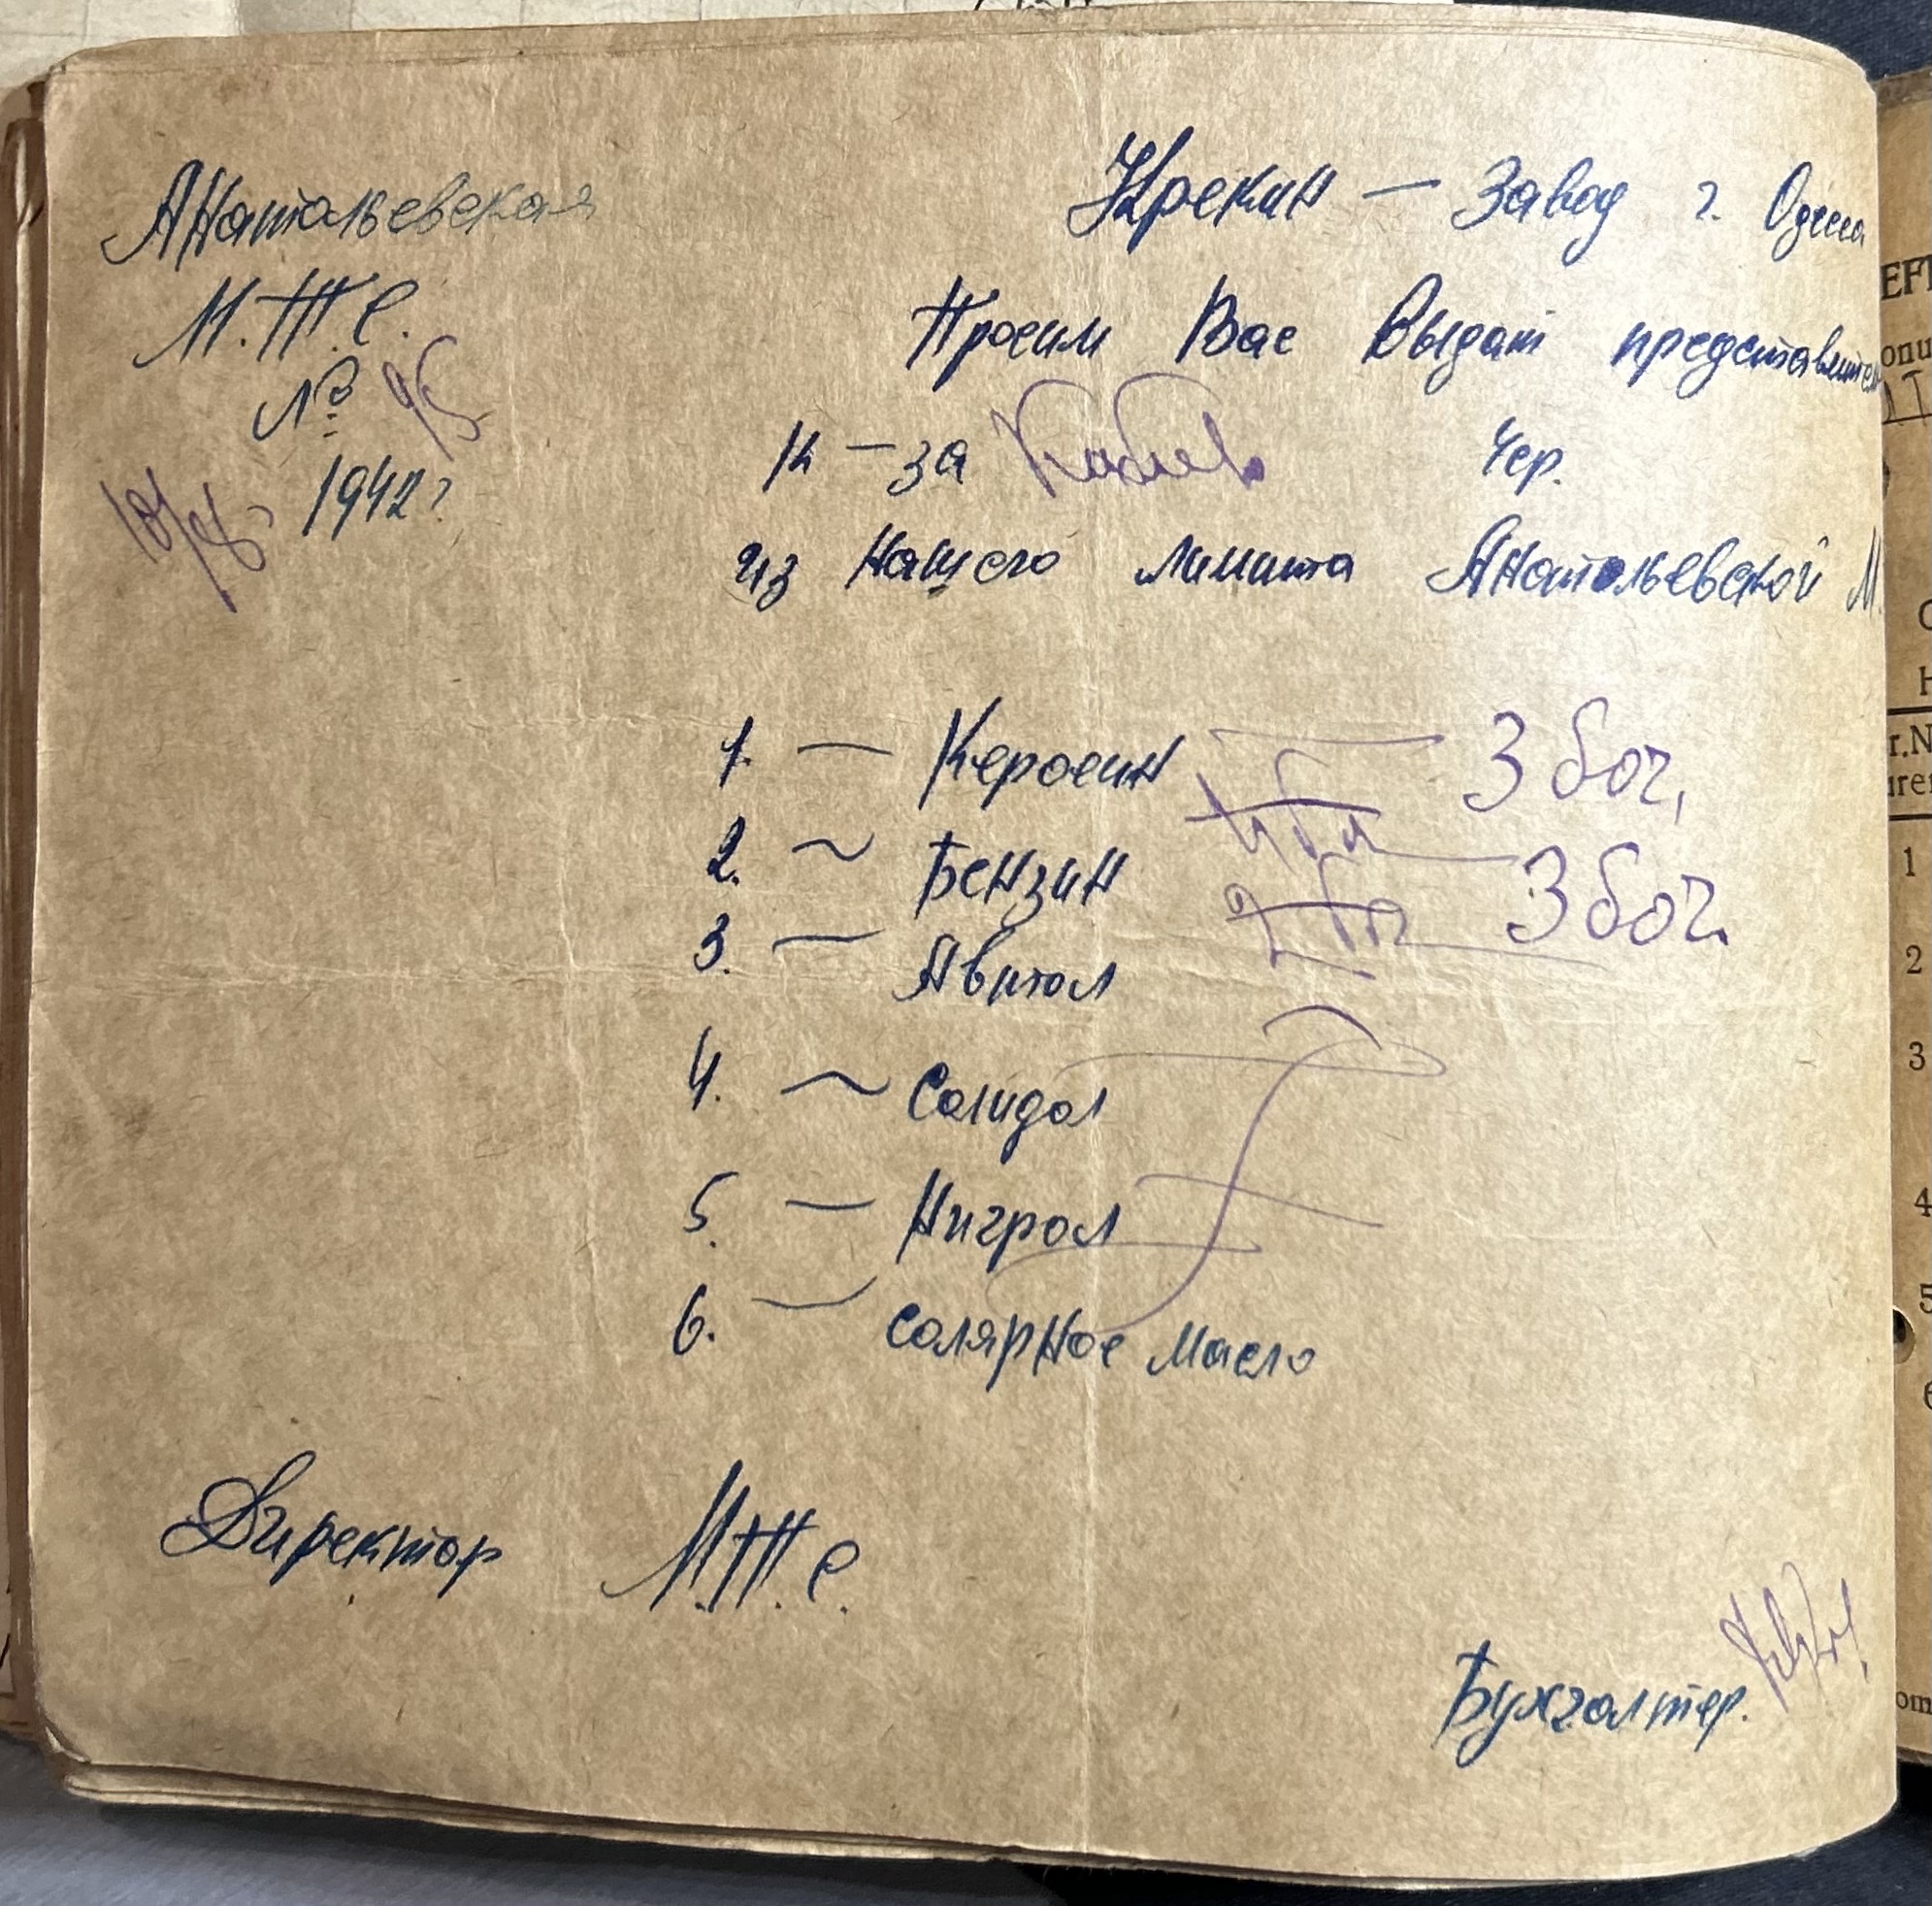 Анатольевская
М.Т.С.
№ 95
10/8 1942 г
Крекин — Завод г. Одесса
Просим Вас Выдат представителю
К — за Чер.
из Нашего лимита Анатольевской М.
1. — Керосин — 3 боч,
2. ~ Бензин — 3 боч.
3. — Автол
4. ~ Солидол
5. — Нигрол
6. — Солярное масло
Директор М.Т.С.
Бухголтер.
EFT
onu
r.N
ure
1
2
3
4
5
6
om